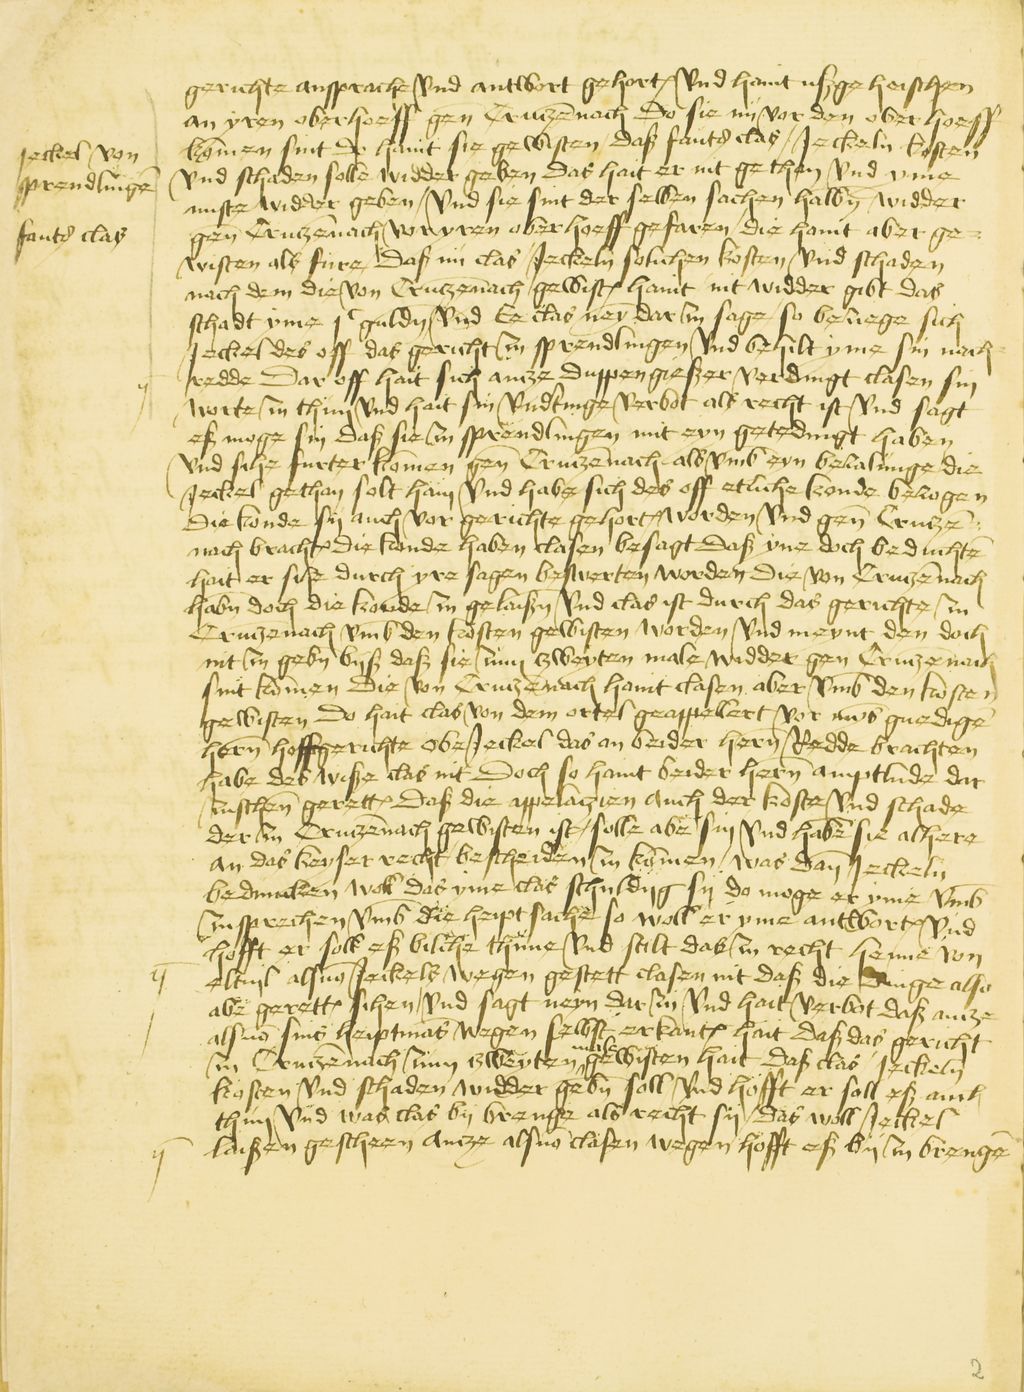 gerichte ansprache vnd antwort gehort vnd haint ußgeheischen
an yren oberhoeff gen Crutzenach Do sie nu vor den oberhoeff
komen sint do haint sie gewisten daß fantz clas / Jeckeln kosten
vnd schaden solle widder geben das hait er nit gethen vnd yme
muste widder geben / vnd sie sint der selben sachen halbin widder
gen Crutzenach vor yren oberhoeff gefaren / die haint aber ge-
wisten als fure / Daß nu clas / Jeckeln solichen kosten vnd schaden
nach dem die von Crutzenach gewist haint nit widder gibt das
schadt yme j c guldin vnd Ee clas neyn dar zu sage / so beziege sich
Jeckel des off das gericht zu sprendlingen vnd behilt yme sin nach-
redde Dar off hait sich antze duppengießer verdingt clasen sin
worte zu thun vnd hait sin vnd dinge verbot als recht ist vnd sagt
eß moge sin daß sie zu sprendlingen mit eyn getedingt haben
vnd sihe furter komen gen Crutzenach als vmb eyn bezalunge die
Jeckel gethan solt hain vnd habe sich des off etliche konde bezogen
die konde sij auch vor gerichte gehort worden vnd gen Crutze-
nach bracht die konde haben clasen besagt daß yne doch beduchte
hait er sihe durch yre sagen beswerten worden Die von Crutzenach
habin doch die konde zu gelaißin vnd clas ist durch das gerichte zu
Crutzenach vmb den kosten gewisten worden vnd meynt den doch
nit zu gebin biß daß sie zum zweyten male widder gen Crutzenach
sint komen Die von Crutzenach haint clasen aber vmb den kosten
gewisten Do hait clas von dem ortel geappellert vor mins gnedigen
hern hoffgerichte obe Jeckel das an beider hern Redde brachten
habe des wiße clas nit Doch so haint beider hern amptlude dar
zuschen gerett Daß die appelacien auch der koste vnd schade
der zu Crutzenach gewisten ist / solle abe sin vnd habe sie alhere
an das keyserrecht bescheiden zu komen / was dan Jeckeln
beduncken woll das yme clas schuldig sij do moge er yme vmb
zu sprechen vmb die heiptsache so woll er yme antworten vnd
hofft er soll eß biliche thune vnd stilt das zu recht henne von
eltuil alsus Jeckels wegen gestett clasen nit daß die dinge also
abe gerett sihen vnd sagt neyn dar zu vnd hait verbot daß antze
alsus sins heiptmans wegen selbst erkant hait daß das gericht
zu Crutzenach zum zweyten male gewisten hait daß clas Jeckeln
kosten vnd schaden widder gebin soll vnd hofft er soll eß auch
thun vnd was clas bij brenge als recht sij / das woll Jeckel
laißen gescheen antze alsus clasen wegen hofft eß bij zu brengen
Jeckel von
sprendlingen
fantz clas
2